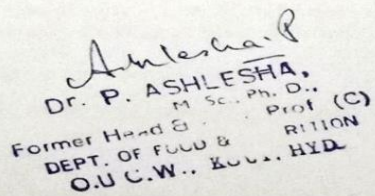 Ashlesha.P
Dr. P. ASHLESHA,
M Sc., Ph. D.,
Former Head & Prof (C)
DEPT. OF FOOD &
O.U C.W., HYD.